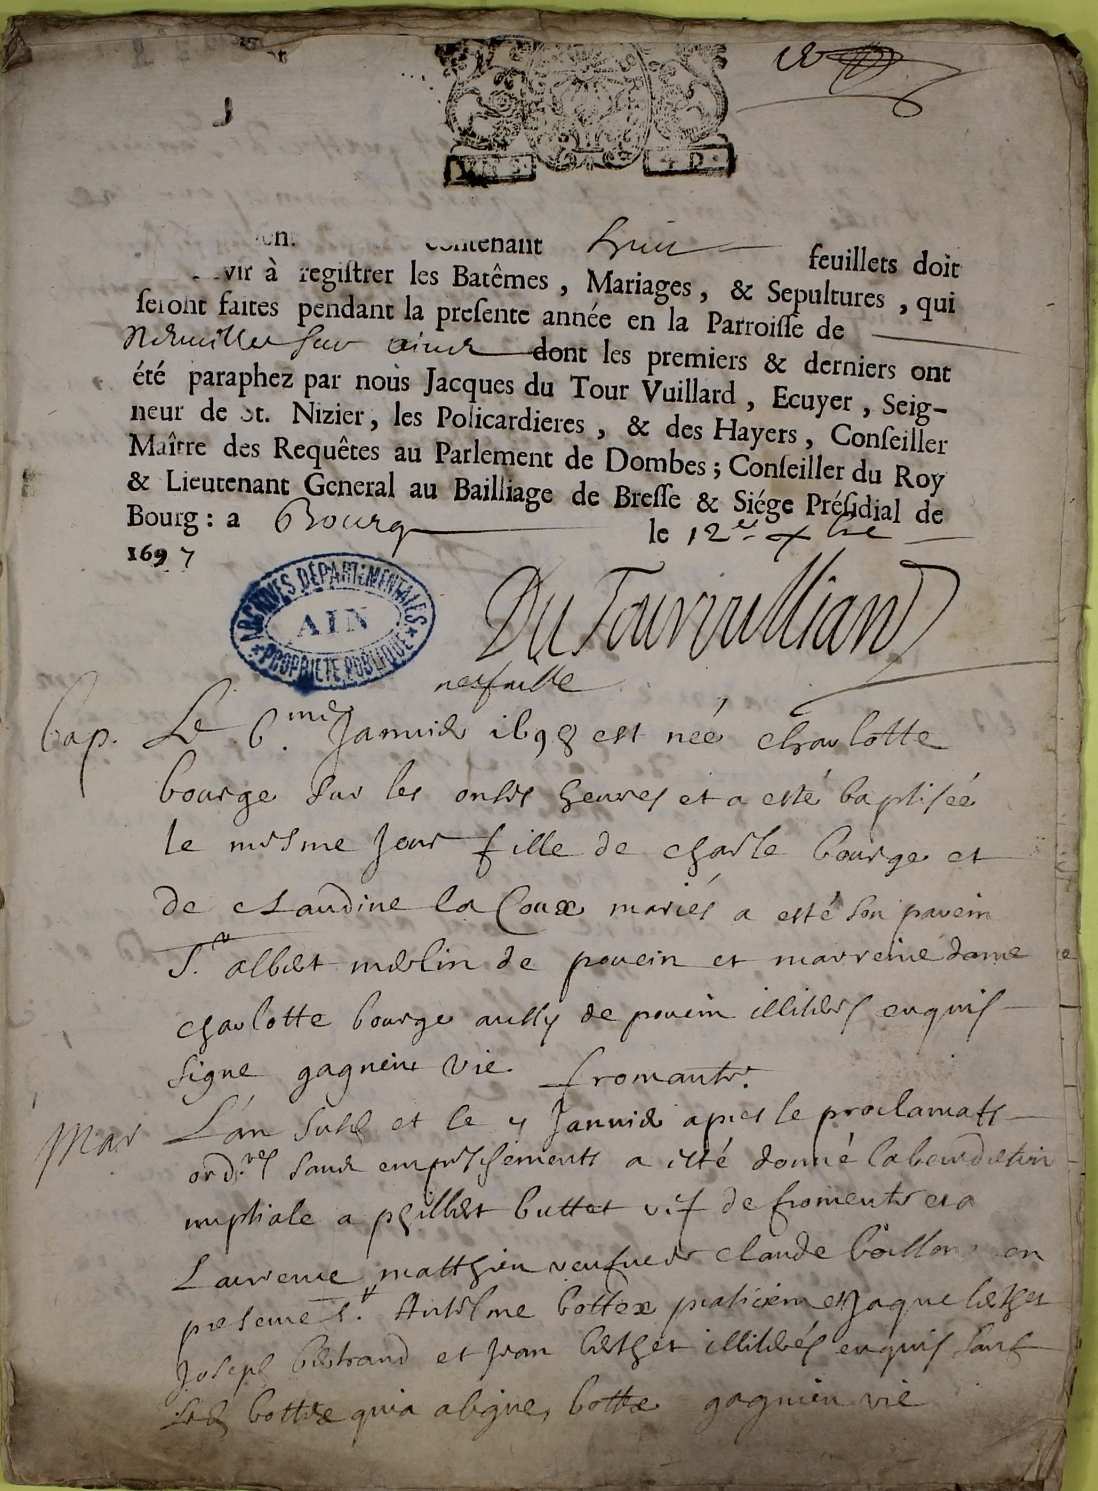 contenant huit feuillets doit
vir à registrer les Batêmes, Mariages, & Sepultures, qui
seront faites pendant la presente année en la Parroisse de
Neuville sur ains dont les premiers & derniers ont
été paraphez par nous Jacques du Tour Vuillard, Ecuyer, Seig-
neur de St. Nizier, les Policardieres, & des Hayers, Conseiller
Maître des Requêtes au Parlement de Dombes; Conseiller du Roy
& Lieutenant General au Bailliage de Bresse & Siége Présidial de
Bourg: a Bourg le 12e xbre
1697
ARCHIVES DÉPARTEMENTALES
AIN
PROPRIÉTÉ PUBLIQUE
Du Tourvuilliard
neufville
bap. Le 6.me Janvier 1698 est née charlotte
bourge sur les onses heures et a esté baptisée
le mesme Jour fille de charle bourge et
de claudine la Coux mariés a esté son parein
Sr. albert merlin de poncin et marreine dame
charlotte bourge aussy de poncin illiterés enquis
signe gagnieur vic. fromantes.
Mar L'an susd et le Janvier apres le proclamats
ord.res sans empeschements a esté donné la benediction
nuptiale a philibert buttet vif de fromentes et a
Laurence matthieu veufue de claude boillon en
presence Sr. Antelme bottex praticien et Jaque berthet
Joseph bertrand et Jean berthet illiterés enquis sauf
led bottex qui a signé, bottex gagnieu vic